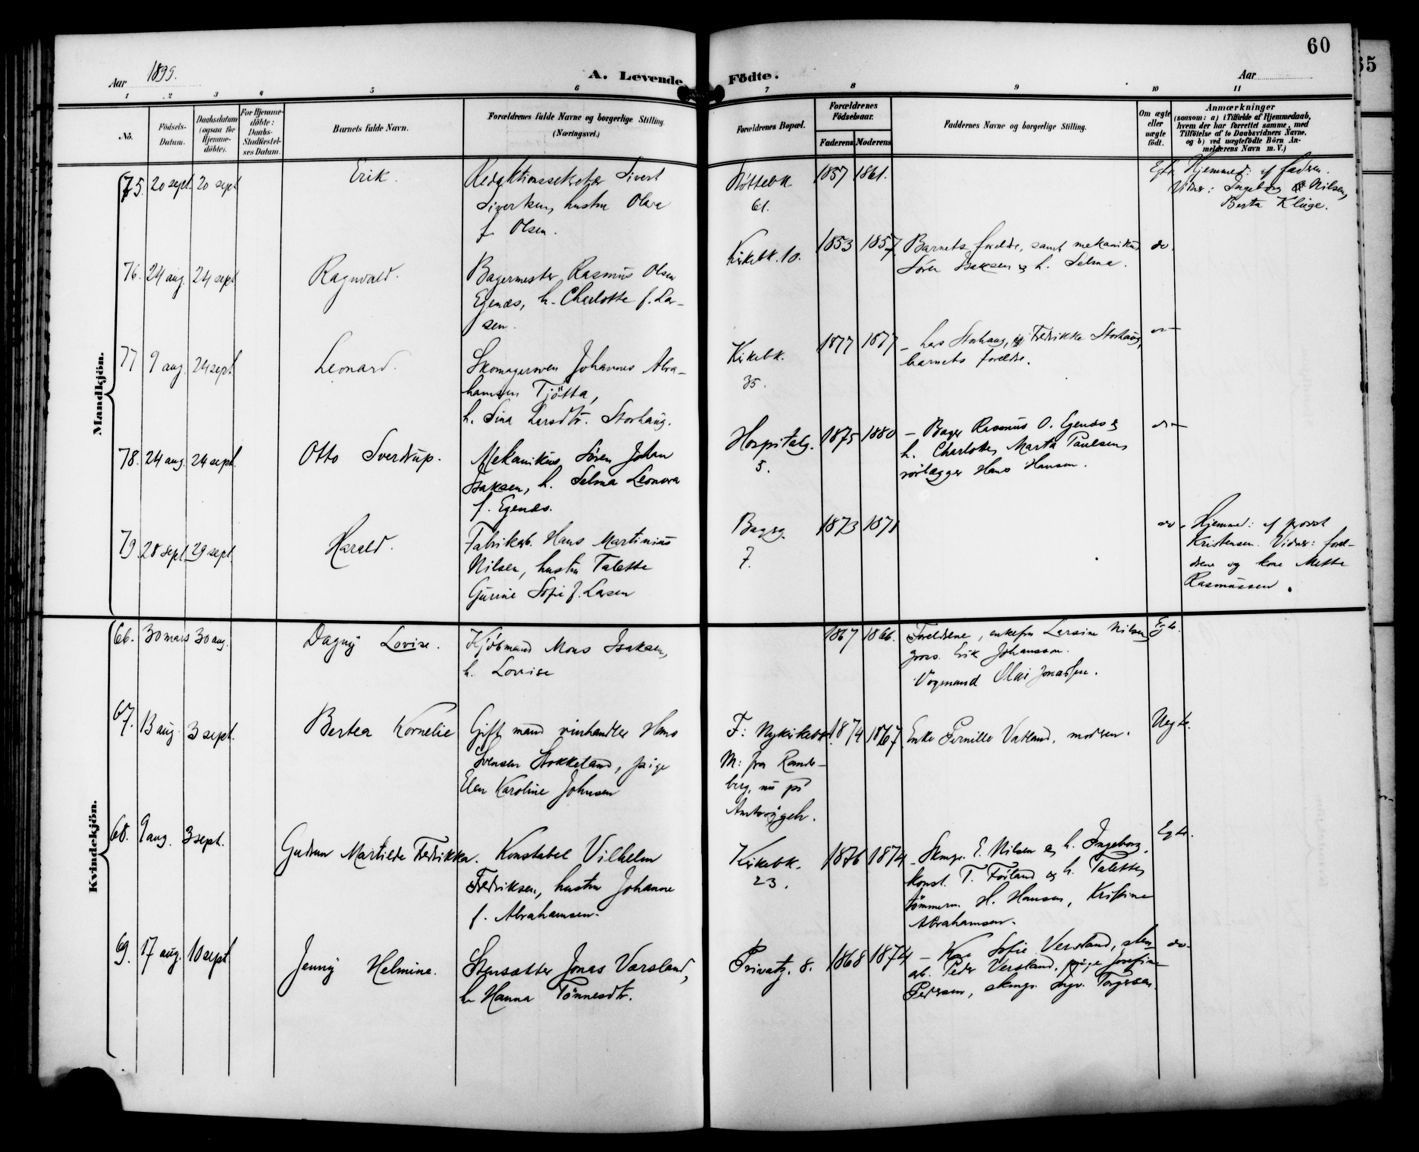 60
Aar 1899.
A. Levende Födte.
Aar
1 2 3 4 5 6 7 8 9 10 11
No.
Födsels-Datum.
Daabsdatum (ogsaa for Hjemme-döbte).
For Hjemme-döbte: Daabs-Stadfæstel-ses Datum.
Barnets fulde Navn.
Forældrenes fulde Navne og borgerlige Stilling. (Næringsvei.)
Forældrenes Bopæl.
Forældrenes Födselsaar.
Faderens Moderens
Faddernes Navne og borgerlige Stilling.
Om ægte eller uægte födt.
Anmærkninger
(saasom: a) i Tilfælde af Hjemmedaab,
hvem der har forrettet samme, med
Tilföielse af to Daabsvidners Navne,
og b) ved uægtefödte Börn An-
melderens Navn m. V.)
Mandkjön.
75. 20 sept. 20 sept Erik. Redaktionssekretær Sivert
Sivertsen, hustru Olava
f. Olsen.
61.
1857 1861.
Hjemmed. af faderen.
Vidner: Ingeborg Nilsen,
Berta Kluge.
76. 24 aug. 24 sept Ragnvald. Bagermester Rasmus Olsen
Egenæs, h. Charlotte f. Lar-
sen.
Kirkebk. 10. 1853 1857 Barnets forældre, samt mekanikus
Sören Isaksen og h. Selma. do.
77 9 aug. 24 sept Leonard. Skomagersven Johannes Abra-
hamsen Tjötta,
h. Sina Larsdtr. Storhaug.
Kirkebk.
35.
1877 1877 – Lars Storhaug, Fredrikke Storhaug,
barnets forældre.
78. 24 aug. 24 sept Otto Sverdrup. Mekanikus Sören Johan
Isaksen, h. Selma Leonora
f. Egenæs.
Hospitalg.
5.
1875 1880 – Bager Rasmus O. Egenæs &
h. Charlotte, Marta Paulsen,
rörlægger Hans Hansen.
79. 28 sept. 29 sept. Harald. Fabrikarb. Hans Martinius
Nilsen, hustru Talette
Gurine Sofie f. Larsen
7.
1873 1871
do. Hjemmed. af provst
Kristensen. Vidner: foræl-
drene og kone Mette
Rasmussen.
Kvindekjön.
66. 30 mars 30 aug. Dagny Lovise. Kjöbmand Mons Isaksen,
h. Lovise
1867 1866. Forældrene, enkefru Larsine Nilsen
Erik Johansson.
Vognmand Olai Jonassen.
Egte.
67. 13 aug. 3 sept. Bertea Kornelie Gift mand vinhandler Hans
Svensen Stokkeland, pige
Elen Karoline Johnsen
F: Nykirkebk.
M: fra Rande-
berg, nu på
1874 1867 Enke Pernille Vatland, moderen. Uegte.
68. 9 aug. 3 sept. Gudrun Martilde Fredrikka. Konstabel Vilhelm
Fredriksen, hustru Johanne
f. Abrahamsen.
Kirkebk.
23.
1876 1874 – Skmgr. E. Nilsen og h. Ingeborg,
konst. T. Föiland og h. Talette,
tömmerm. H. Hansen, Kristine
Abrahamsen.
Egte.
69. 17 aug. 10 sept. Jenny Helmine. Stensætter Jonas Varsland,
h. Hanna Tönnesdtr.
Privatg. 8. 1868 1874 – Kone Sofie Versland, sten-
arb. Peder Versland, pige Josefine
Pedersen, skmgr. Ingv. Torgersen.
do.